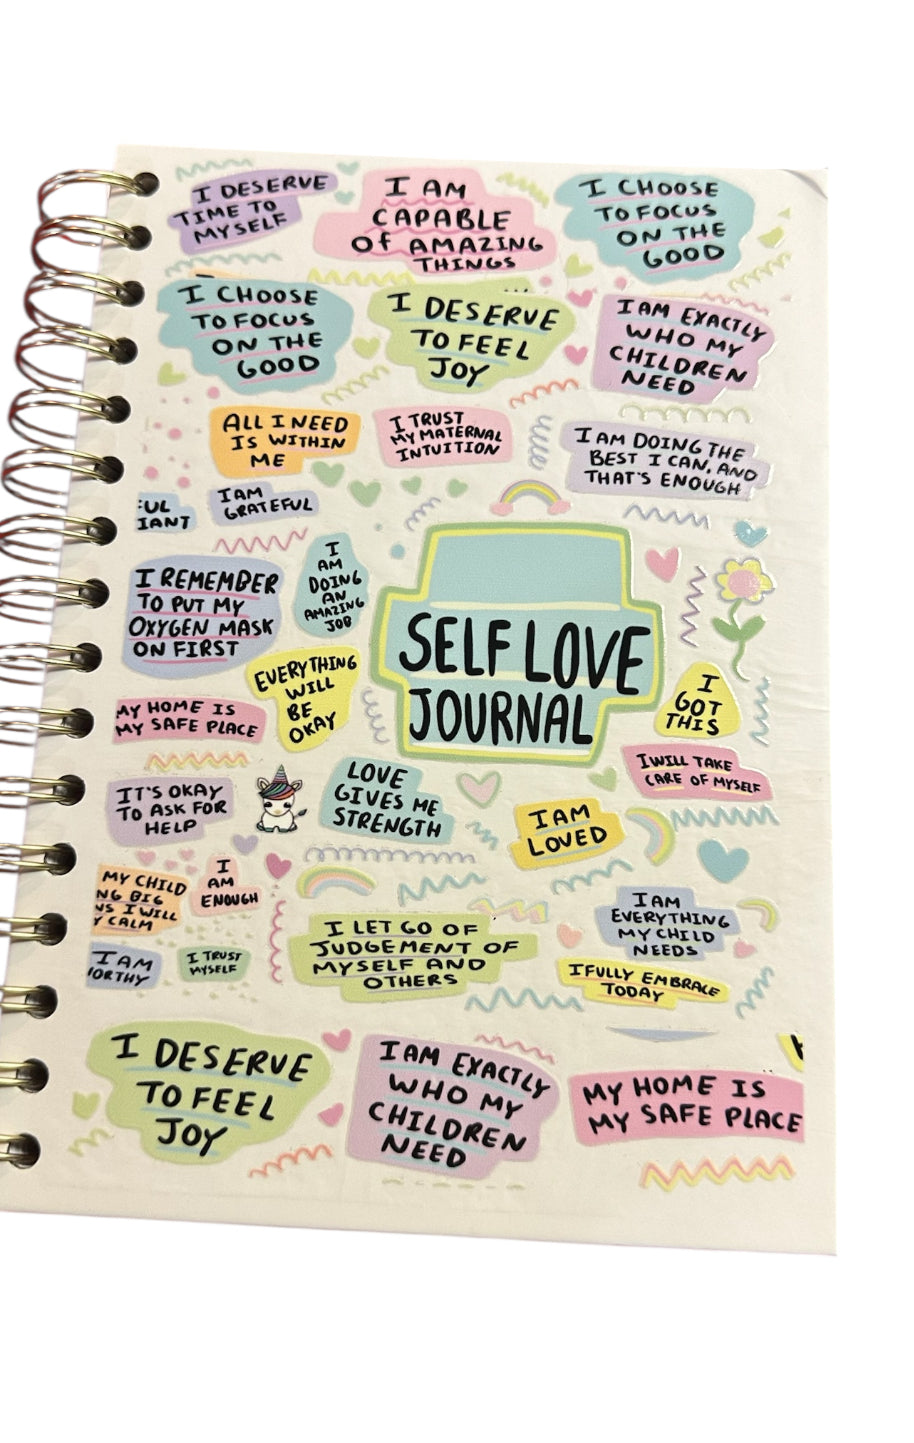 I DESERVE
TIME TO
MYSELF
I AM
CAPABLE
Of AMAZING
THINGS
I CHOOSE
TO FOCUS
ON THE
GOOD
I CHOOSE
TO FOCUS
ON THE
GOOD
I DESERVE
TO FEEL
JOY
I AM EXACTLY
WHO MY
CHILDREN
NEED
ALL I NEED
IS WITHIN
ME
I TRUST
MY MATERNAL
INTUITION
I AM DOING THE
BEST I CAN, AND
THAT'S ENOUGH
UL
IANT
I AM
GRATEFUL
I REMEMBER
TO PUT MY
OXYGEN MASK
ON FIRST
I
AM
DOING
AN
AMAZING
JOB
SELF LOVE
JOURNAL
EVERYTHING
WILL
BE
OKAY
I
GOT
THIS
MY HOME IS
MY SAFE PLACE
I WILL TAKE
CARE OF MYSELF
IT'S OKAY
TO ASK FOR
HELP
LOVE
GIVES ME
STRENGTH
I AM
LOVED
MY CHILD
NG BIG
NS I WILL
Y CALM
I
AM
ENOUGH
I AM
EVERYTHING
MY CHILD
NEEDS
I LET GO OF
JUDGEMENT OF
MYSELF AND
OTHERS
I AM
ORTHY
I TRUST
MYSELF
I FULLY EMBRACE
TODAY
I DESERVE
TO FEEL
JOY
I AM EXACTLY
WHO MY
CHILDREN
NEED
MY HOME IS
MY SAFE PLACE